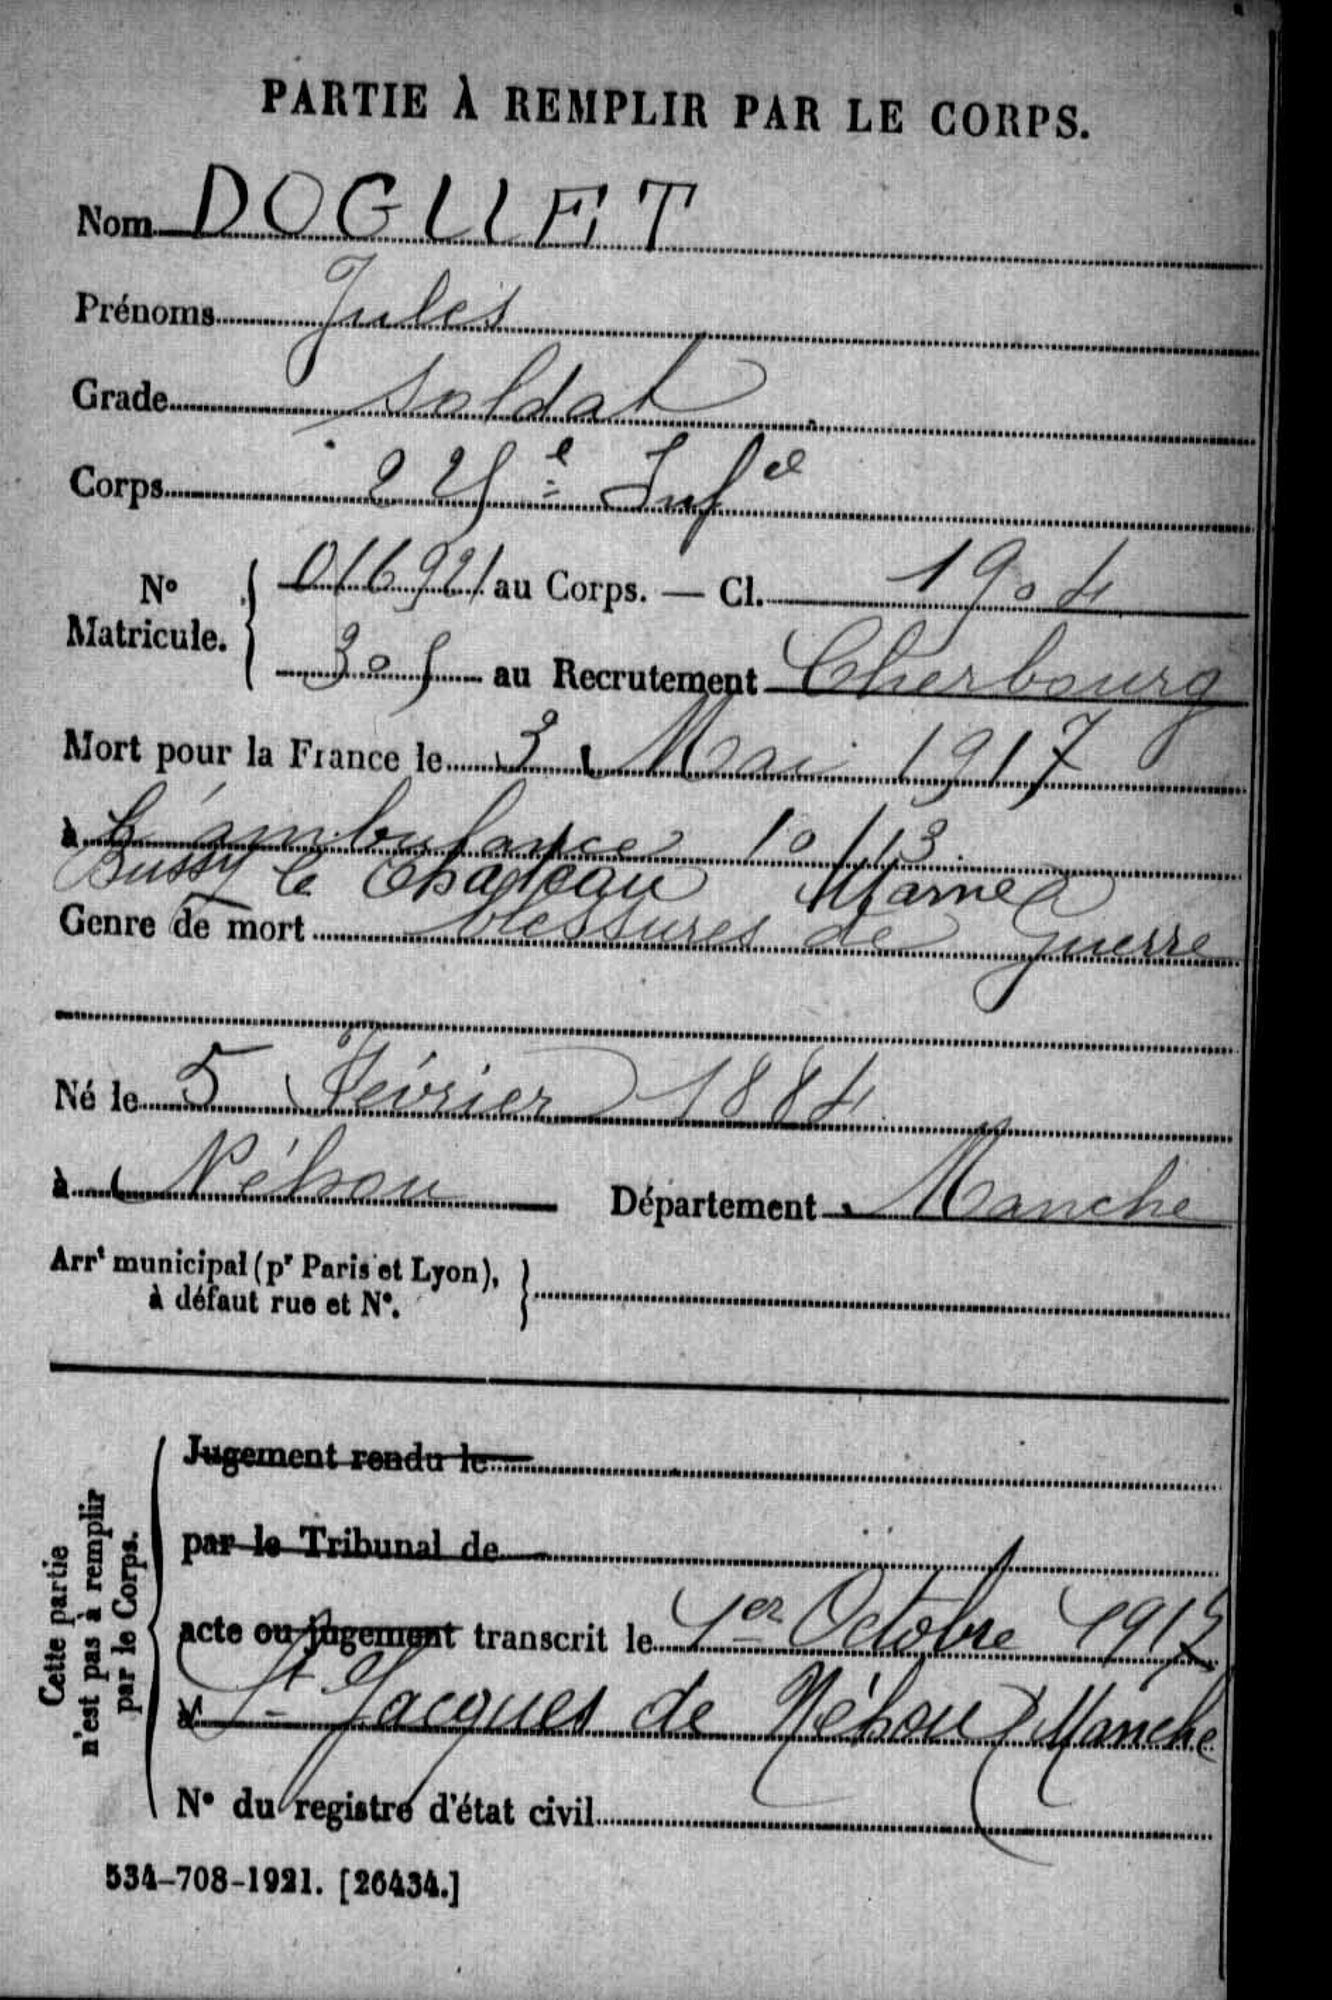 PARTIE À REMPLIR PAR LE CORPS.
Nom DOGUET
Prénoms Jules
Grade Soldat
Corps 225e Infie
No Matricule. { 016921 au Corps. — Cl. 1904
305 au Recrutement Cherbourg
Mort pour la France le 3 Mai 1917
à L'ambulance 10/13
Bussy le Chateau Marne
Genre de mort blessures de Guerre
Né le 5 Février 1884
à Néhou Département Manche
Arrt municipal (pr Paris et Lyon), à défaut rue et No.
Cette partie n'est pas à remplir par le Corps.
Jugement rendu le
par le Tribunal de
acte ou jugement transcrit le 1er Octobre 1917
à St Jacques de Néhou (Manche
No du registre d'état civil
534-708-1921. [26434.]